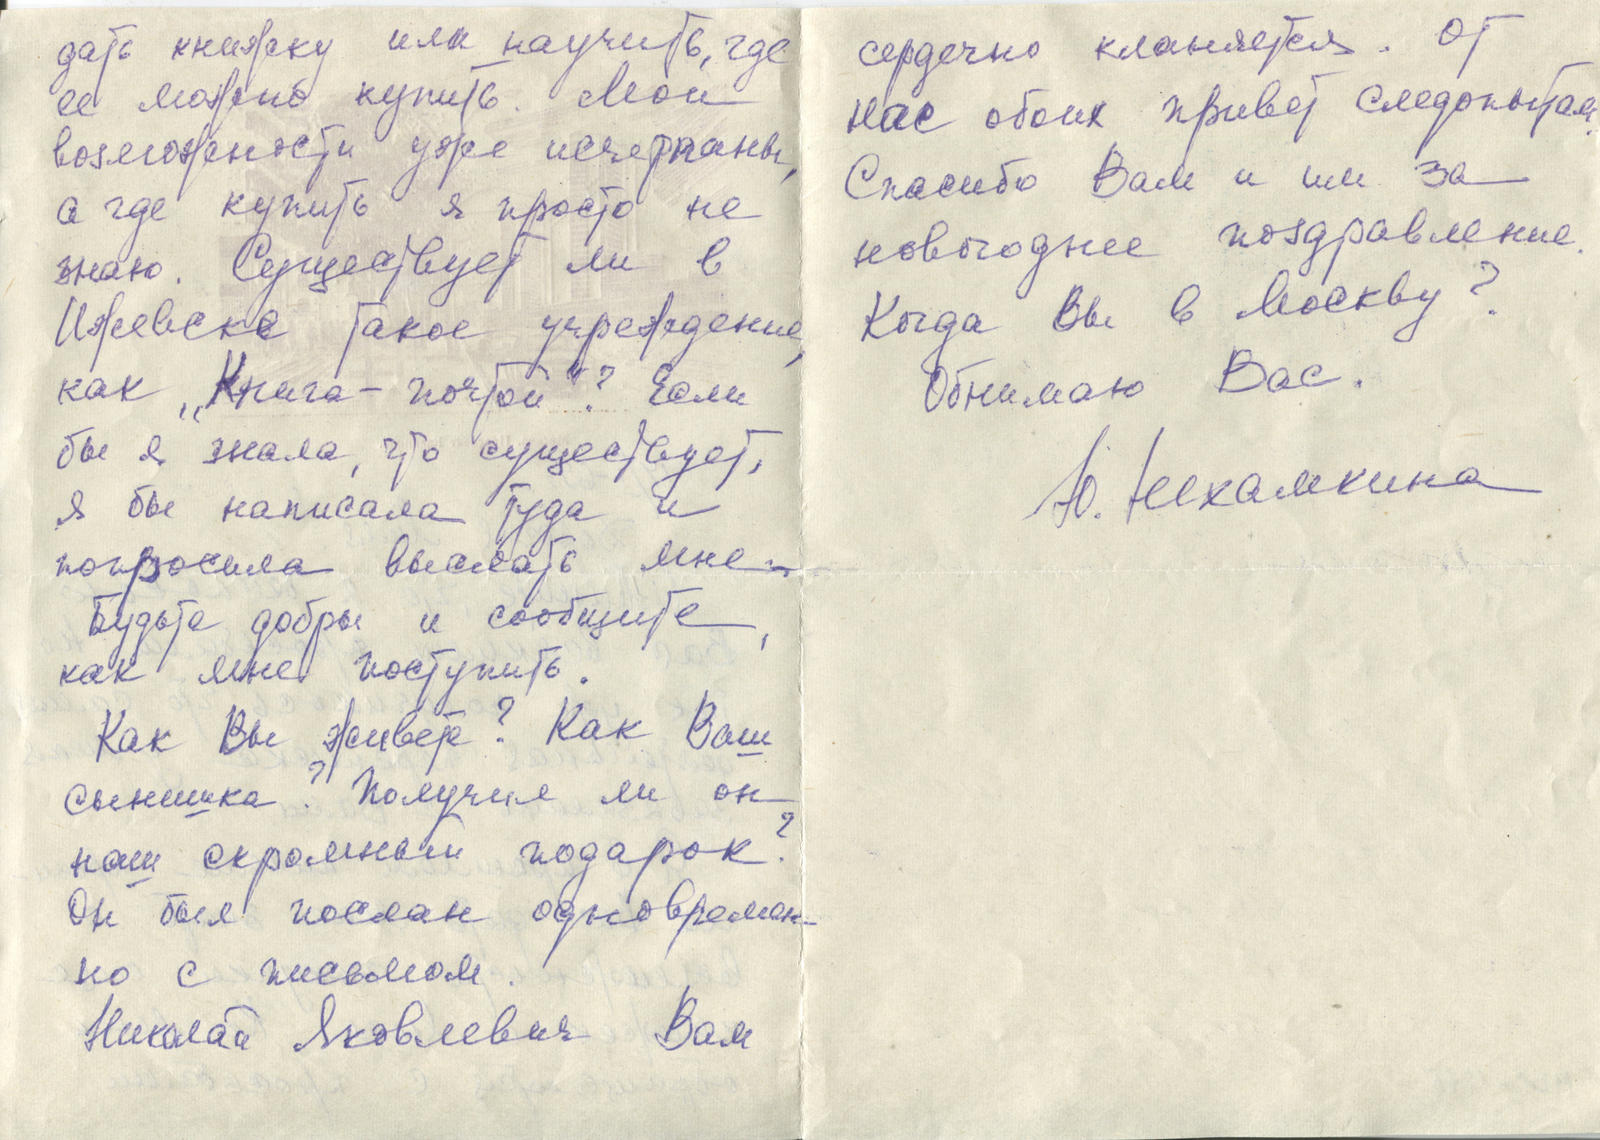 дать книжку или научить, где
ее можно купить. Мои
возможности уже исчерпаны,
а где купить я просто не
знаю. Существует ли в
Ижевске такое учреждение,
как „Книга – почтой“? Если
бы я знала, что существует,
я бы написала туда и
попросила выслать мне.
Будьте добры и сообщите,
как мне поступить.
Как Вы живете? Как Ваш
сынишка? Получил ли он
наш скромный подарок?
Он был послан одновремен-
но с письмом.
Николай Яковлевич Вам
сердечно кланяется. От
нас обоих привет следопытам.
Спасибо Вам и им за
новогоднее поздравление.
Когда Вы в Москву?
Обнимаю Вас.
Ю. Нехамкина